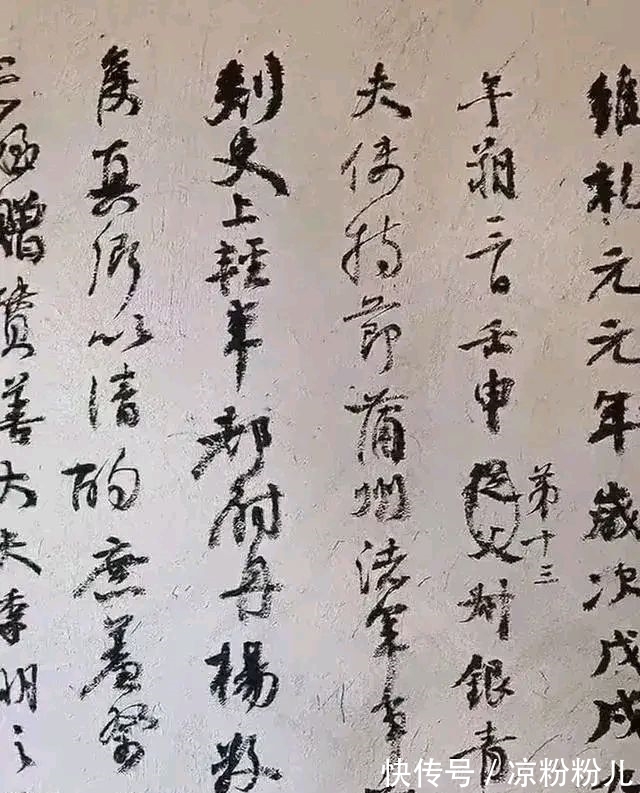 維乾元元年歲次戊戌
午朔三日壬申從父叔銀青
第十三
夫使持節蒲州諸軍事
刺史上輕車都尉丹楊縣
侯真卿以清酌庶羞祭
亡姪贈贊善大夫季明之
快传号 / 凉粉粉儿